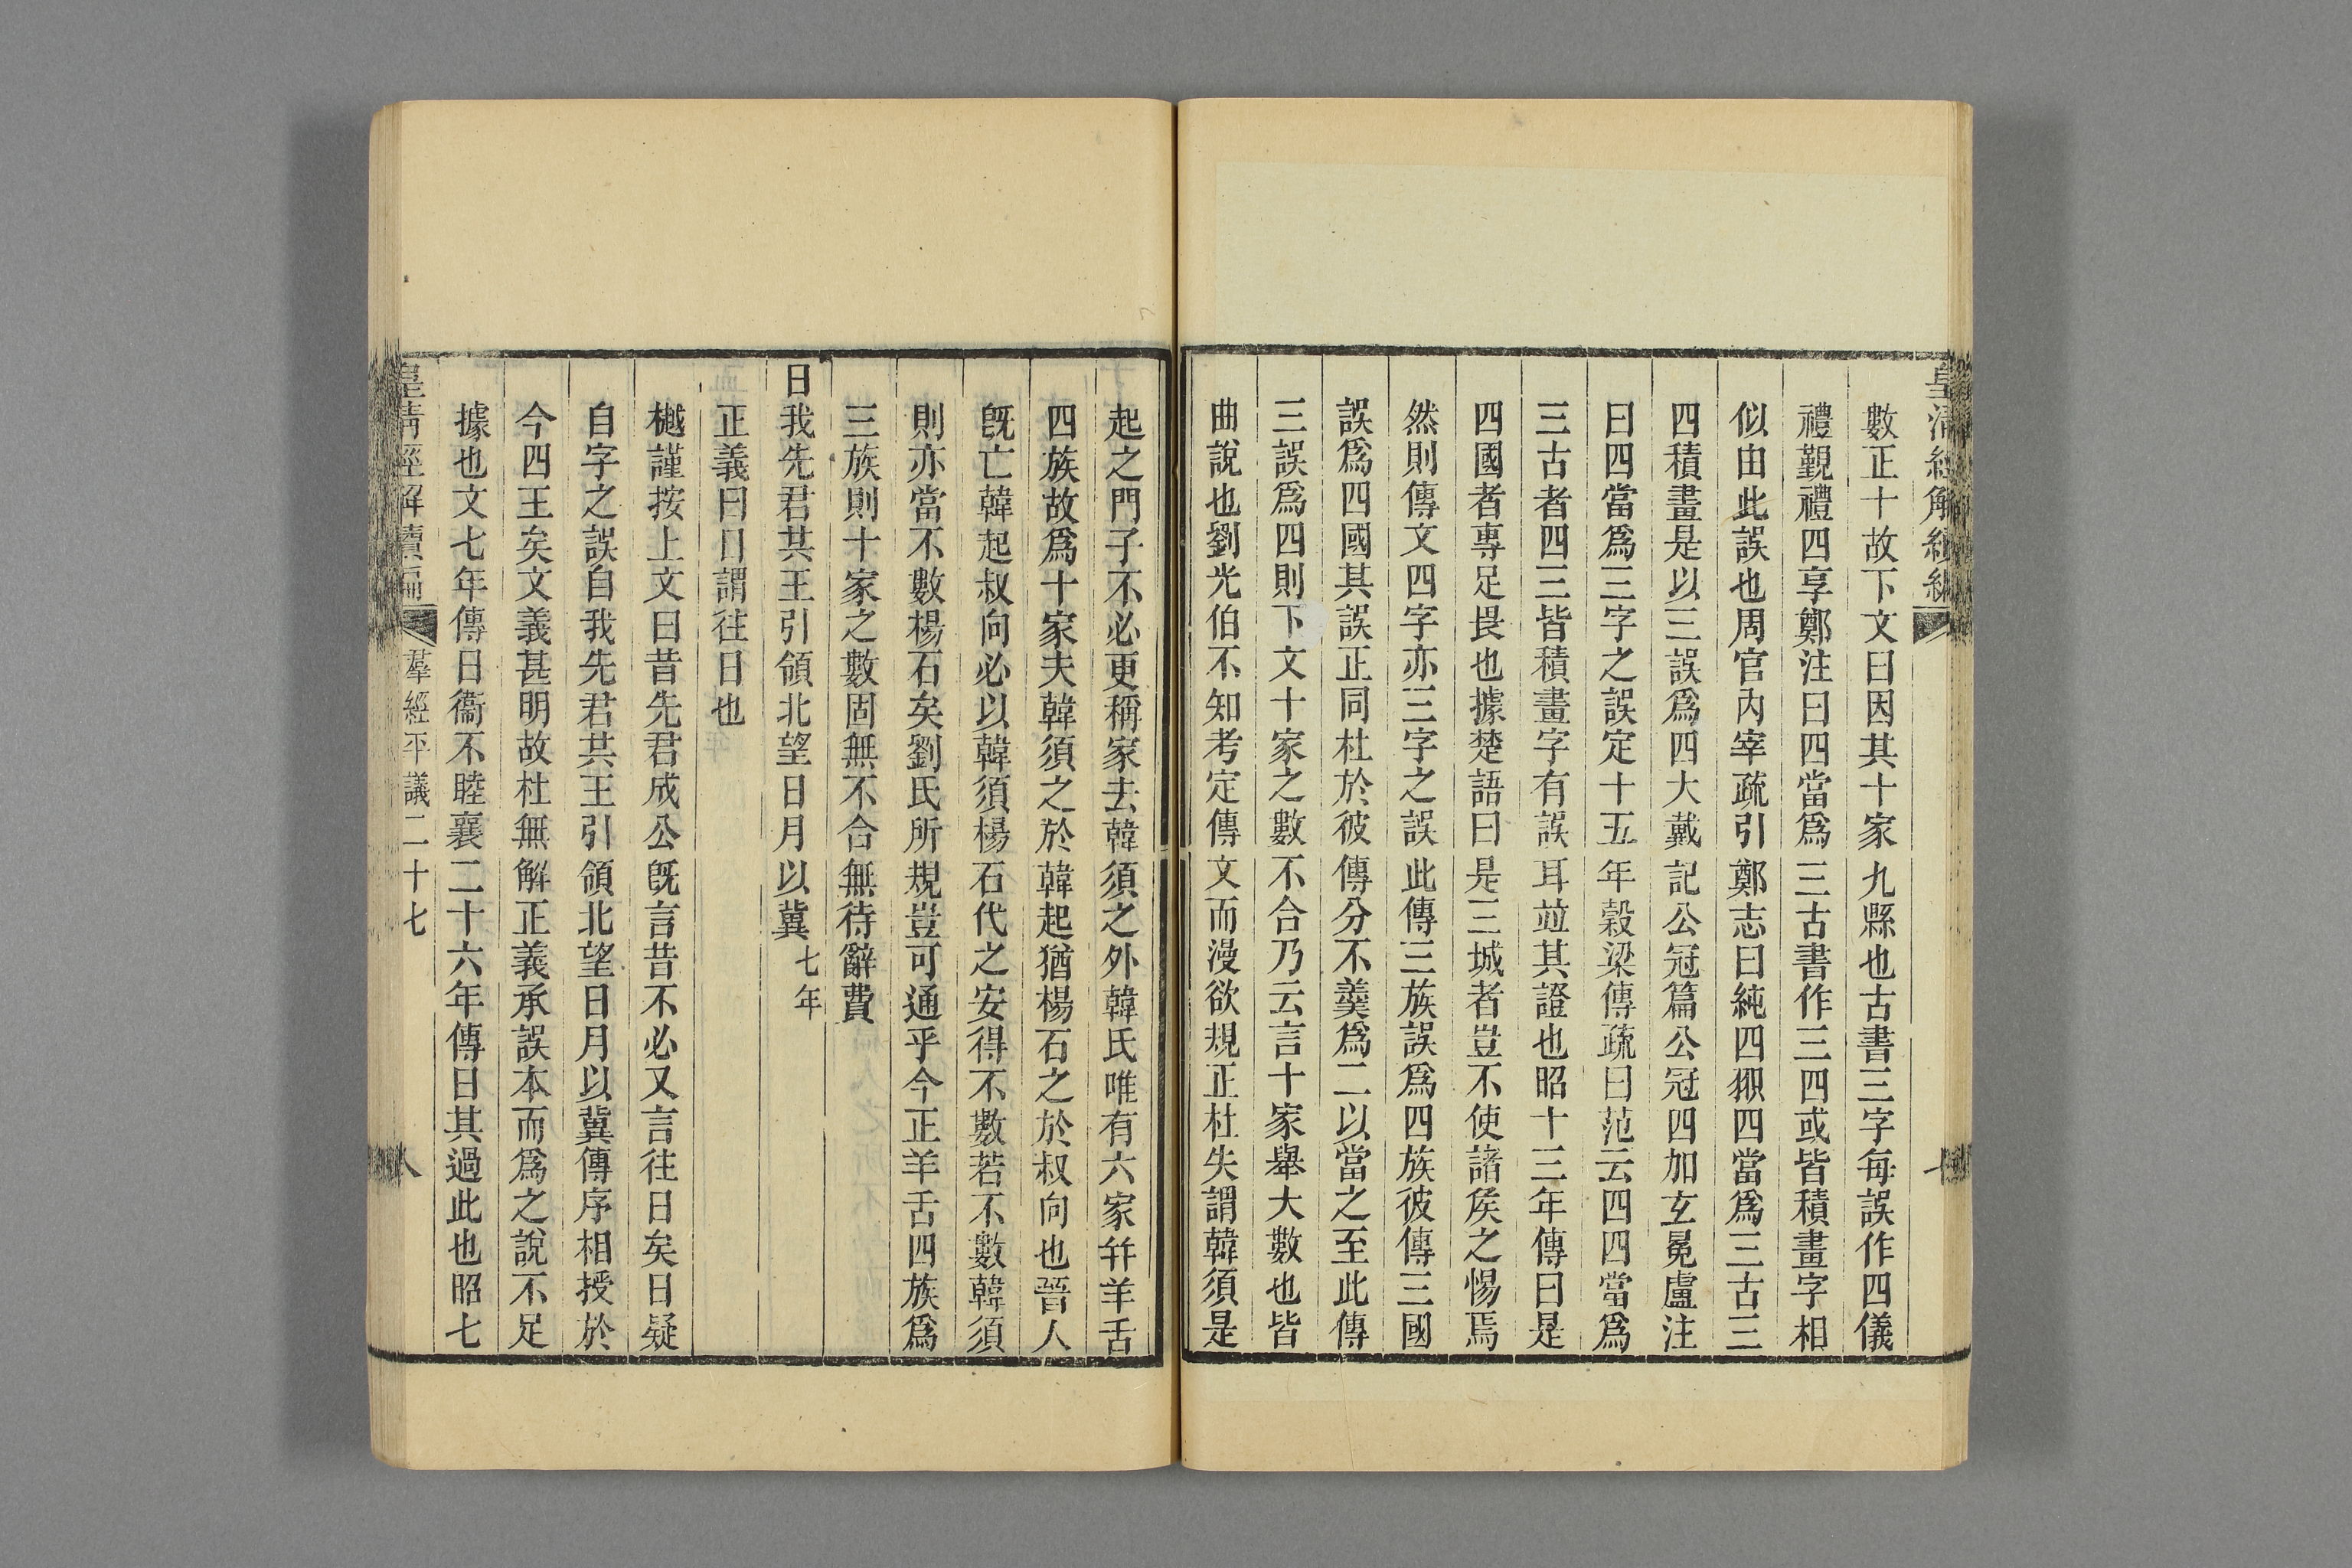 皇清經解續編
數正十故下文曰因其十家九縣也古書三字每誤作四儀
禮覲禮四享鄭注曰四當爲三古書作三四或皆積畫字相
似由此誤也周官內宰疏引鄭志曰純四䋤四當爲三古三
四積畫是以三誤爲四大戴記公冠篇公冠四加玄冕盧注
曰四當爲三字之誤定十五年穀梁傳疏曰范云四四當爲
三古者四三皆積畫字有誤耳竝其證也昭十三年傳曰是
四國者專足畏也據楚語曰是三城者豈不使諸矦之惕焉
然則傳文四字亦三字之誤此傳三族誤爲四族彼傳三國
誤爲四國其誤正同杜於彼傳分不羹爲二以當之至此傳
三誤爲四則下文十家之數不合乃云言十家舉大數也皆
曲說也劉光伯不知考定傳文而漫欲規正杜失謂韓須是
起之門子不必更稱家去韓須之外韓氏唯有六家幷羊舌
四族故爲十家夫韓須之於韓起猶楊石之於叔向也晉人
旣亡韓起叔向必以韓須楊石代之安得不數若不數韓須
則亦當不數楊石矣劉氏所規豈可通乎今正羊舌四族爲
三族則十家之數固無不合無待辭費
日我先君共王引領北望日月以冀七年
正義曰日謂往日也
樾謹按上文曰昔先君成公旣言昔不必又言往日矣日疑
自字之誤自我先君共王引領北望日月以冀傳序相授於
今四王矣文義甚明故杜無解正義承誤本而爲之說不足
據也文七年傳日衞不睦襄二十六年傳日其過此也昭七
皇清經解續編 羣經平議二十七 八